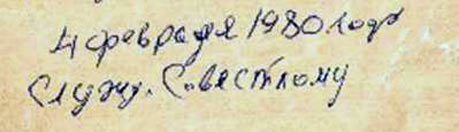 4 февраля 1980 года
Служу. Советскому